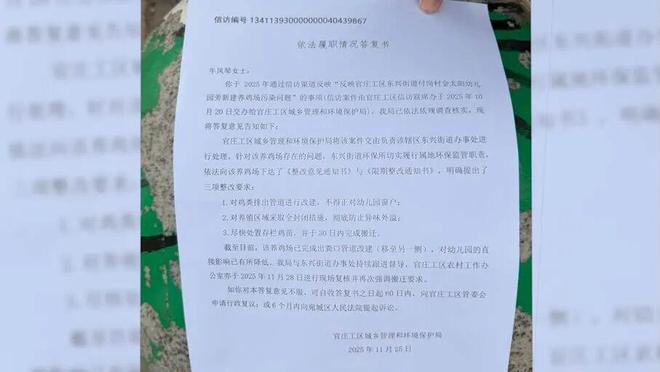 信访编号 13411393000000040439867
依法履职情况答复书
牛凤琴女士:
你于 2025 年通过信访渠道反映“反映官庄工区东兴街道付岗村金太阳幼儿
园旁新建养鸡场污染问题”的事项(信访案件由官庄工区信访联席办于 2025 年 10
月 20 日交办给官庄工区城乡管理和环境保护局),我局已依法依规调查核实,现
将答复意见告知如下:
官庄工区城乡管理和环境保护局将该案件交由负责该辖区东兴街道办事处进
行处理,针对该养鸡场存在的问题,东兴街道环保所切实履行属地环保监管职责,
依法向该养鸡场下达了《整改意见通知书》与《限期整改通知书》,明确提出了
三项整改要求:
1.对鸡粪排出管道进行改建,不得正对幼儿园窗户;
2.对养殖区域采取全封闭措施,彻底防止异味外溢;
3.尽快处置存栏鸡苗,并于 30 日内完成搬迁。
截至目前,该养鸡场已完成出粪口管道改建(移至另一侧),对幼儿园的直
接影响已有所降低。我局与东兴街道办事处持续跟进督导,官庄工区农村工作办
公室亦于 2025 年 11 月 28 日进行现场复核并再次强调搬迁要求。
如你对本答复意见不服,可自收答复书之日起 60 日内,向官庄工区管委会
申请行政复议;或 6 个月内向宛城区人民法院提起诉讼。
官庄工区城乡管理和环境保护局
2025 年 11 月 25 日